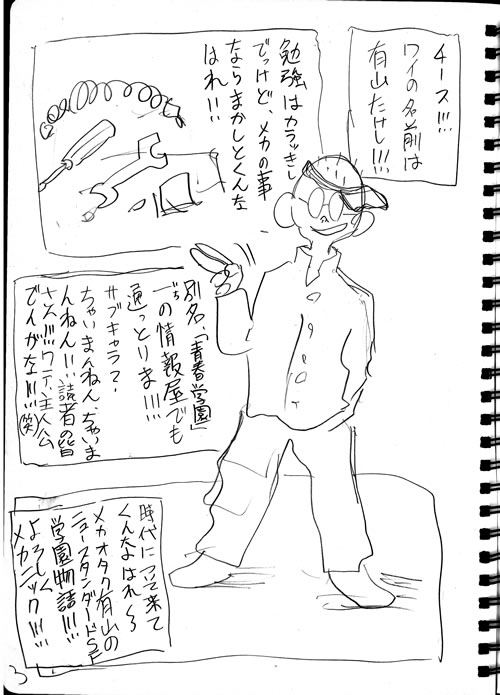 チース!!!
ワイの名前は
有山たけし!!!
勉強はカラッきし
でっけど、メカの事
ならまかしとくんな
はれ!!
別名、「青春学園」
一の情報屋でも
通っとりま!!!
サブキャラ?
ちゃいまんねん、ちゃいま
んねん!!、読者の皆
さん!!!ワテ、主人公
でんがな!!!(笑)
時代について来て
くんなはれ〜
メカオタク有山の
ニュースタンダードSF
学園物語!!!
よろしく
メカニック!!!
3